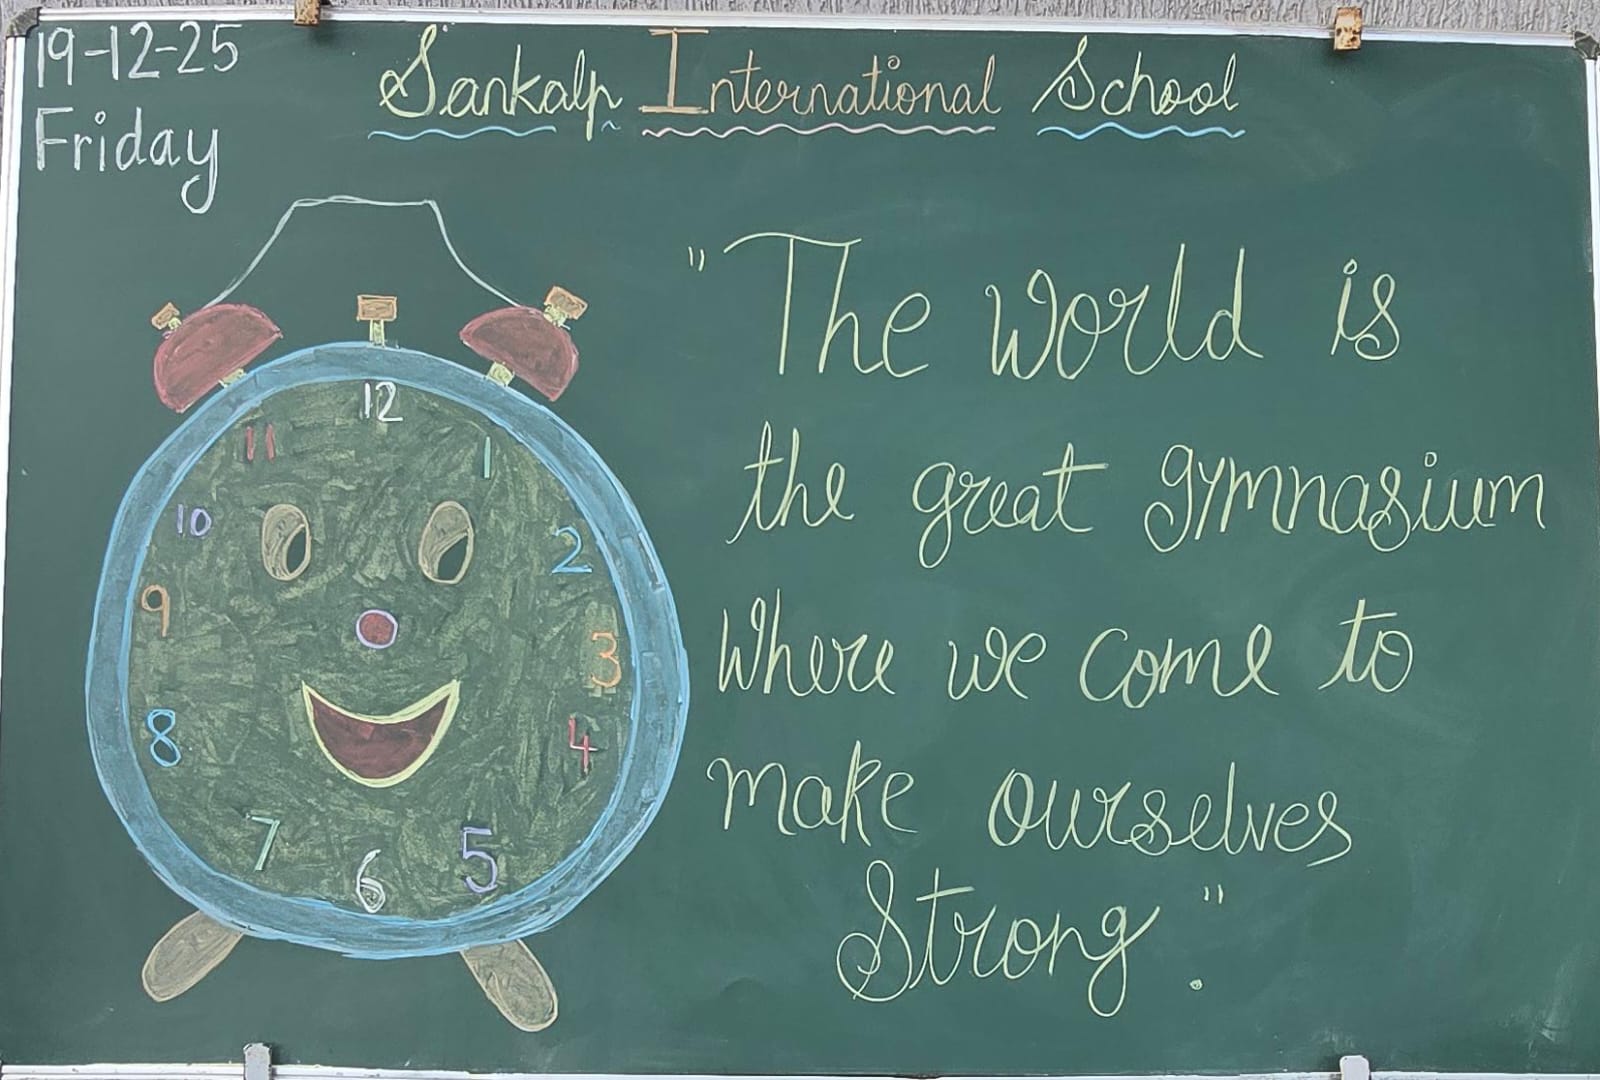 19-12-25
Friday
Sankalp International School
"The world is
the great gymnasium
where we come to
make ourselves
Strong."
12
11
1
10
2
9
3
8
4
7
5
6